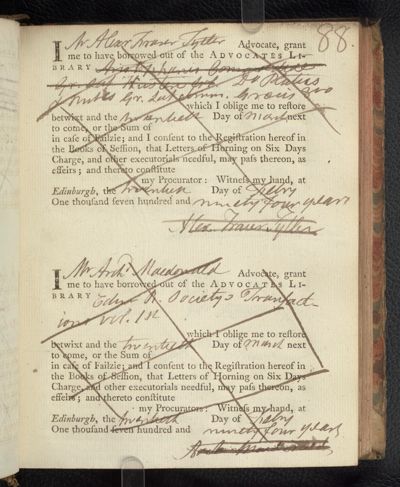 88.
I Mr Alexr Fraser Tytler Advocate, grant
me to have borrowed out of the ADVOCATES LI-
BRARY Aristophanes
Gr.
Gr. Gravis 200
which I oblige me to restore
betwixt and the twentieth Day of March next
to come, or the Sum of
in case of Failzie; and I consent to the Registration hereof in
the Books of Session, that Letters of Horning on Six Days
Charge, and other executorials needful, may pass thereon, as
effeirs; and thereto constitute
my Procurator: Witness my hand, at
Edinburgh, the twentieth Day of Febry
One thousand seven hundred and ninety four years
Alex Fraser Tytler
I Mr Archd Macdonald Advocate, grant
me to have borrowed out of the ADVOCATES LI-
BRARY Edinr R. Society's Transact-
ions Vol. 1st
which I oblige me to restore
betwixt and the twentieth Day of March next
to come, or the Sum of
in case of Failzie; and I consent to the Registration hereof in
the Books of Session, that Letters of Horning on Six Days
Charge, and other executorials needful, may pass thereon, as
effeirs; and thereto constitute
my Procurators: Witness my hand, at
Edinburgh, the twentieth Day of Febry
One thousand seven hundred and ninety four years